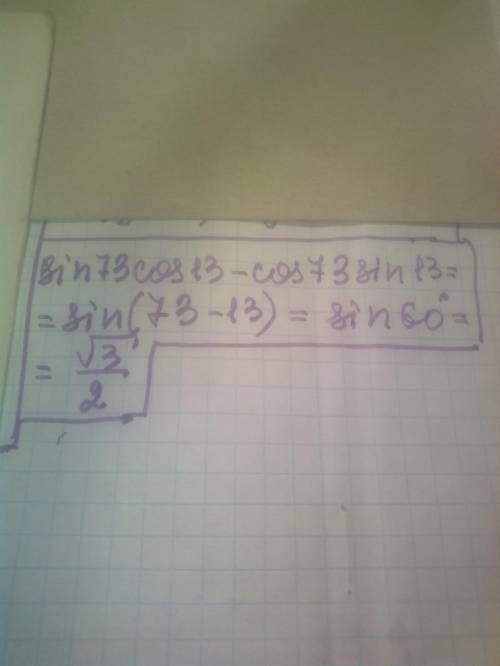 sin73cos13-cos73sin13=
=sin(73-13)= sin60°=
= √3/2